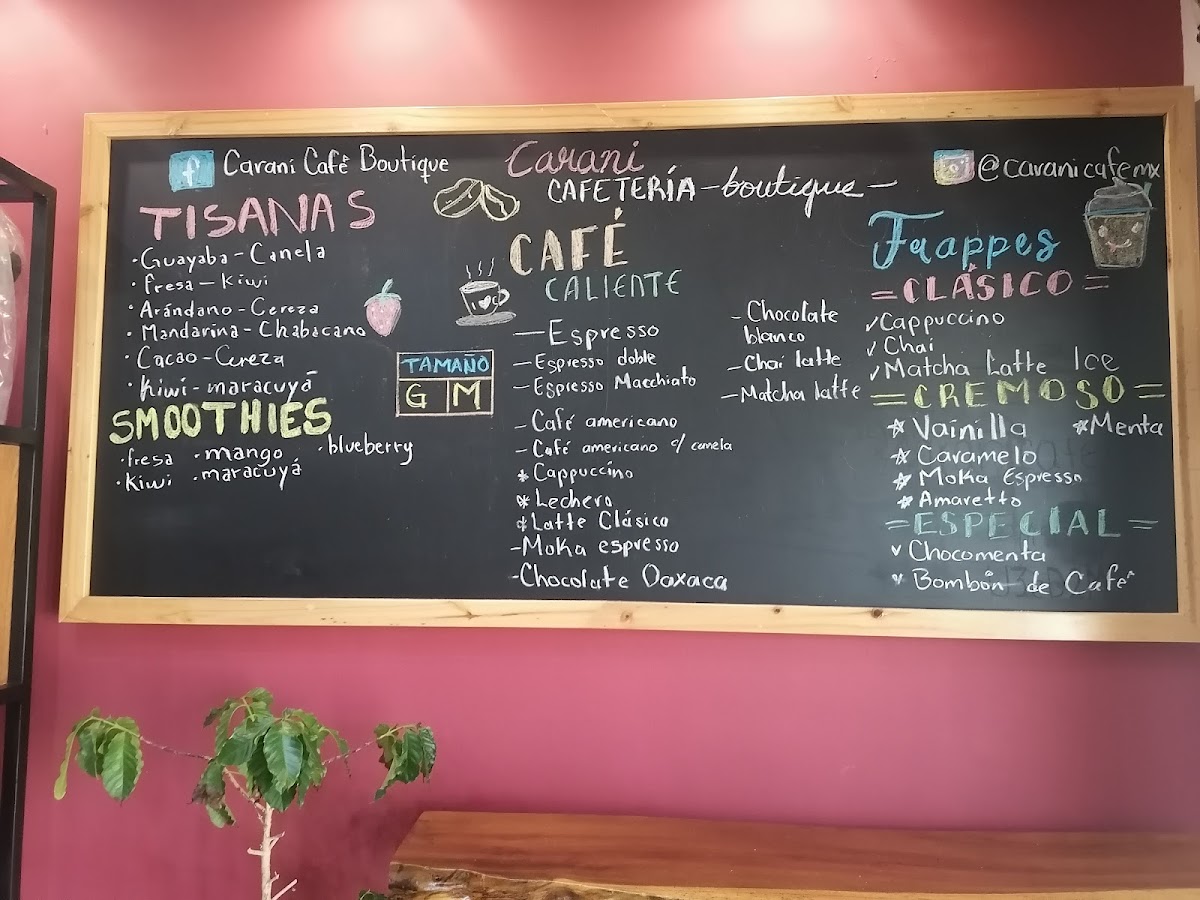 Carani Café Boutique
Carani
CAFETERÍA - boutique -
@caranicafemx
TISANAS
· Guayaba - Canela
· fresa - Kiwi
· Arándano - Cereza
· Mandarina - Chabacano
· Cacao - Cereza
· Kiwi - maracuyá
SMOOTHIES
· fresa · mango · blueberry
· Kiwi · maracuyá
TAMAÑO
G M
CAFÉ
CALIENTE
- Espresso
- Espresso doble
- Espresso Macchiato
- Café americano
- Café americano c/ canela
* Cappuccino
* Lechero
* Latte Clásico
- Moka espresso
- Chocolate Oaxaca
- Chocolate
blanco
- Chai latte
- Matcha latte
Frappes
= CLÁSICO =
✓ Cappuccino
✓ Chai
✓ Matcha Latte Ice
= CREMOSO =
* Vainilla * Menta
* Caramelo
* Moka Espresso
* Amaretto
= ESPECIAL =
v Chocomenta
v Bombón de Café